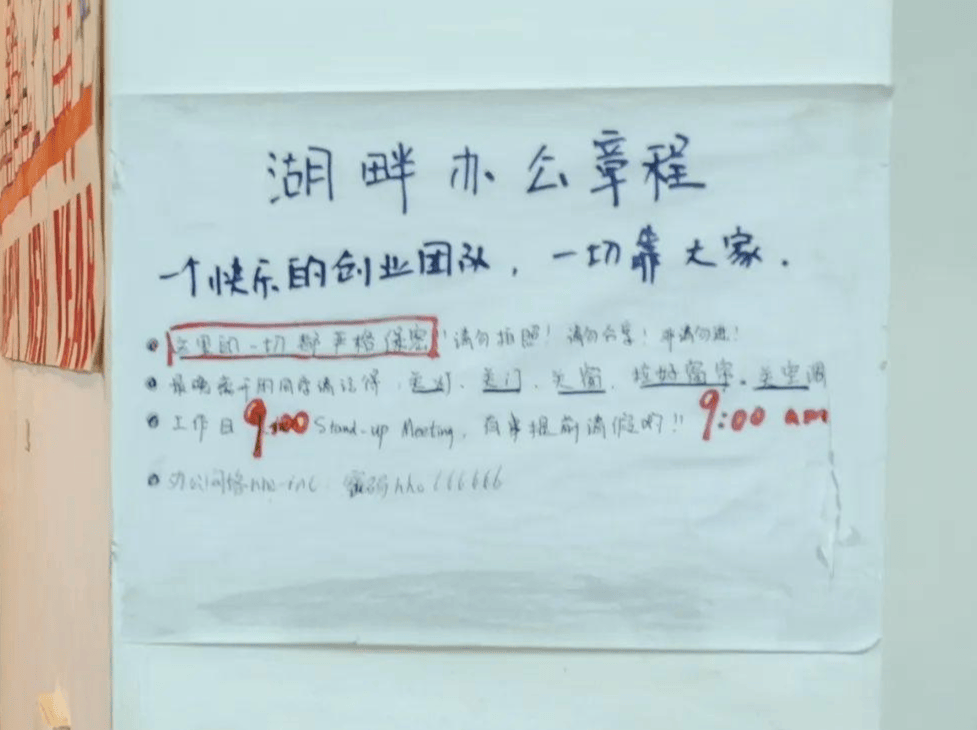 湖畔办公章程
一个快乐的创业团队,一切靠大家.
这里的一切都严格保密!请勿拍照!请勿分享!非请勿进!
最晚离开的同学请记得:关灯、关门、关窗、拉好窗帘、关空调
工作日 9:00 Stand-up Meeting, 有事提前请假哟!! 9:00 am
办公网络 密码 666666